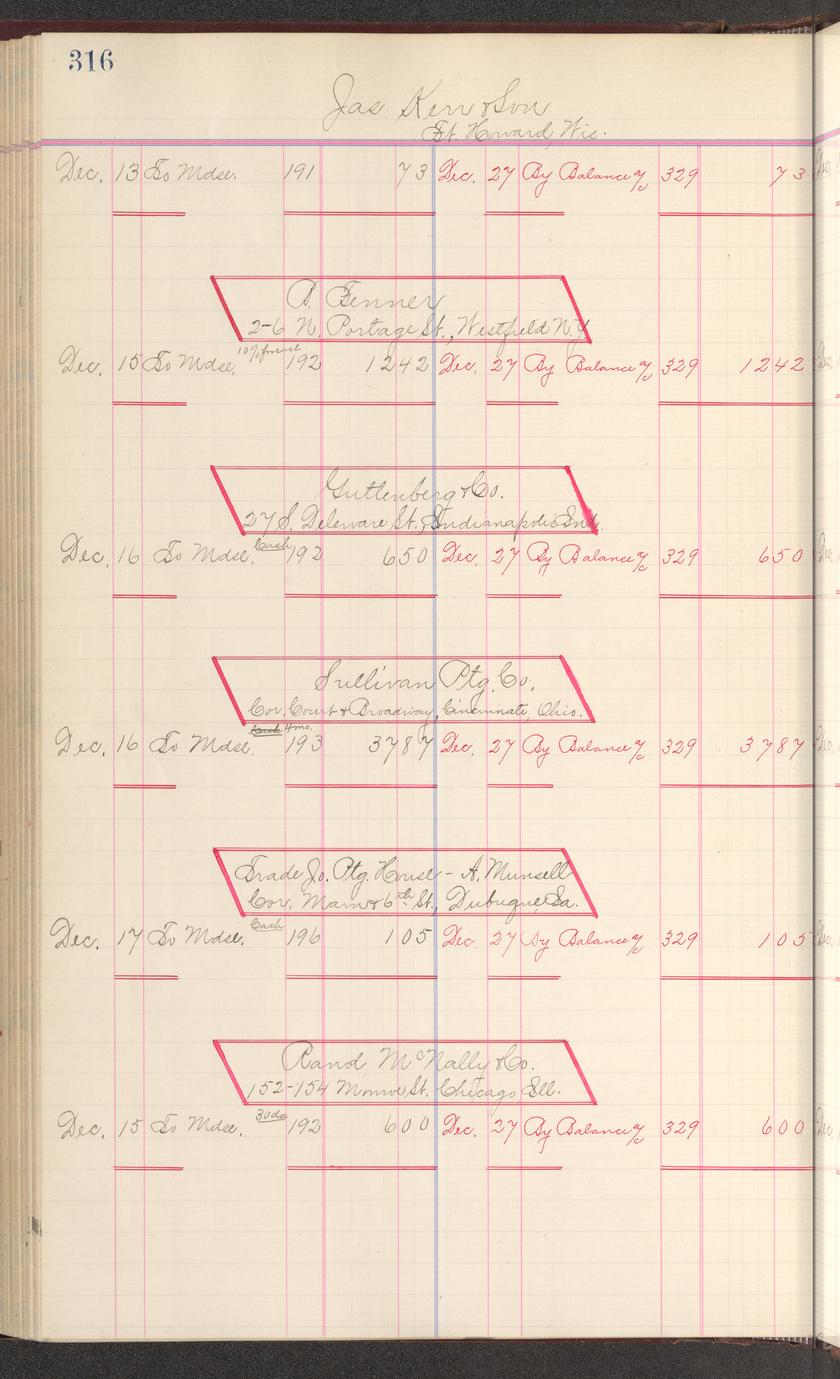 316
Jas. Kerr & Son
Ft. Howard, Wis.
Dec. 13 To Mdse. 191 73 Dec. 27 By Balance a/c 329 73
P. Fenner
2-6 N. Portage St., Westfield N.Y.
Dec. 15 To Mdse. 192 1242 Dec. 27 By Balance a/c 329 1242
Guttenberg & Co.
27 S. Deleware St., Indianapolis Ind.
Dec. 16 To Mdse. Cash 192 650 Dec. 27 By Balance a/c 329 650
Sullivan Ptg. Co.
Cor. Court & Broadway, Cincinnati, Ohio.
Dec. 16 To Mdse. Cash 4 mo. 193 3787 Dec. 27 By Balance a/c 329 3787
Trade Jo. Ptg. House - A. Munsell
Cor. Main & 6th St., Dubuque, Ia.
Dec. 17 To Mdse. Cash 196 105 Dec. 27 By Balance a/c 329 105
Rand McNally & Co.
152-154 Monroe St. Chicago Ill.
Dec. 15 To Mdse. 30 da 192 600 Dec. 27 By Balance a/c 329 600